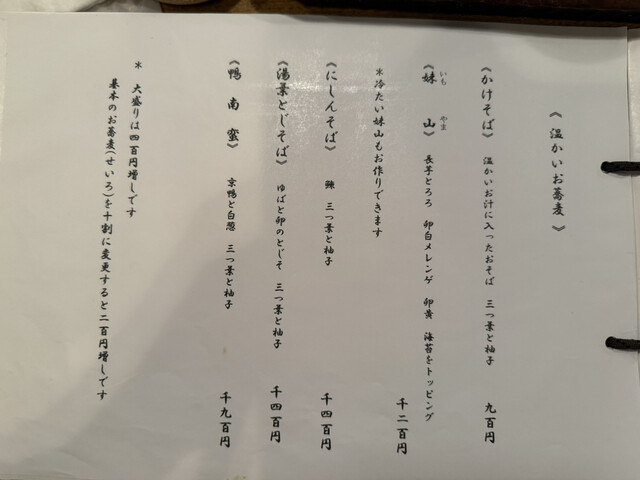 《 温かいお蕎麦 》
《かけそば》 温かいお汁に入ったおそば 三つ葉と柚子 九百円
《妹山》 長芋とろろ 卵白メレンゲ 卵黄 海苔をトッピング
いも やま
千二百円
＊冷たい妹山もお作りできます
《にしんそば》 鰊 三つ葉と柚子 千四百円
《湯葉とじそば》 ゆばと卵のとじそ 三つ葉と柚子 千四百円
《鴨南蛮》 京鴨と白葱 三つ葉と柚子 千九百円
＊ 大盛りは四百円増しです
基本のお蕎麦(せいろ)を十割に変更すると二百円増しです